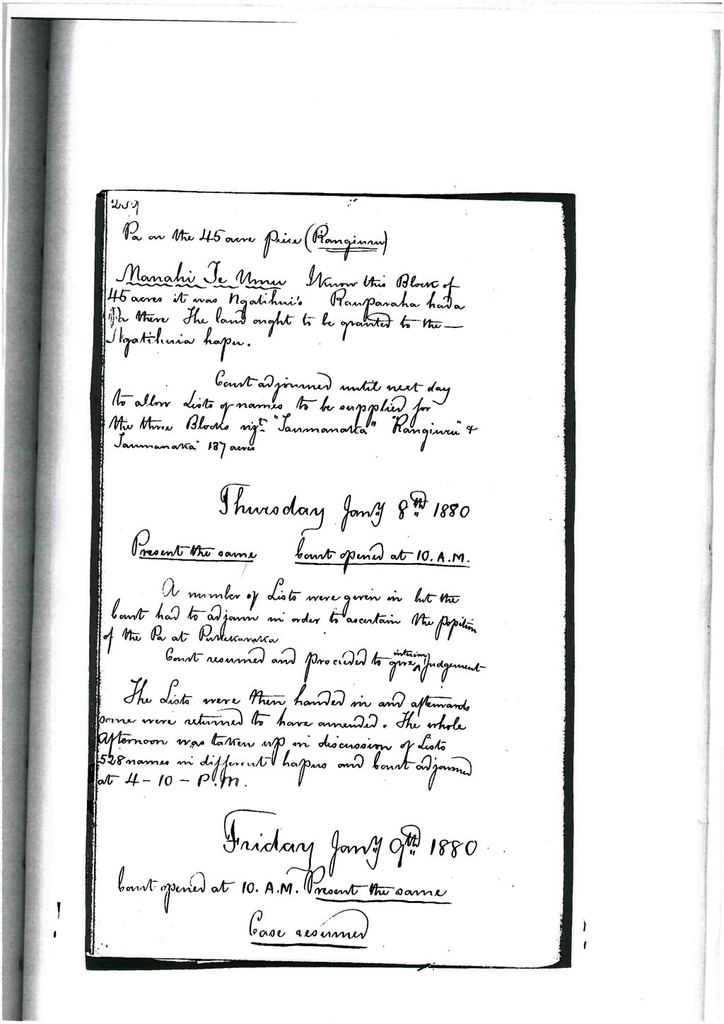 259
Pa on the 45 acre piece (Ranginui)
Manahi Te Umu I know this Block of
45 acres it was Ngatihui's Rauparaha had a
Pa there The land ought to be granted to the —
Ngatihuia hapu.
Court adjourned until next day
to allow Lists of names to be supplied for
the three Blocks vizt. "Taumanaka" "Ranginui" &
Taumanaka" 187 acres
Thursday Jany 8th 1880
Present the same Court opened at 10. A.M.
A number of Lists were given in but the
Court had to adjourn in order to ascertain the
of the Pa at
Court resumed and proceeded to give interim judgement
The Lists were then handed in and afterwards
some were returned to have amended. The whole
afternoon was taken up in discussion of Lists
528 names in different hapus and Court adjourned
at 4-10-P.M.
Friday Jany 9th 1880
Court opened at 10. A.M. Present the same
Case resumed